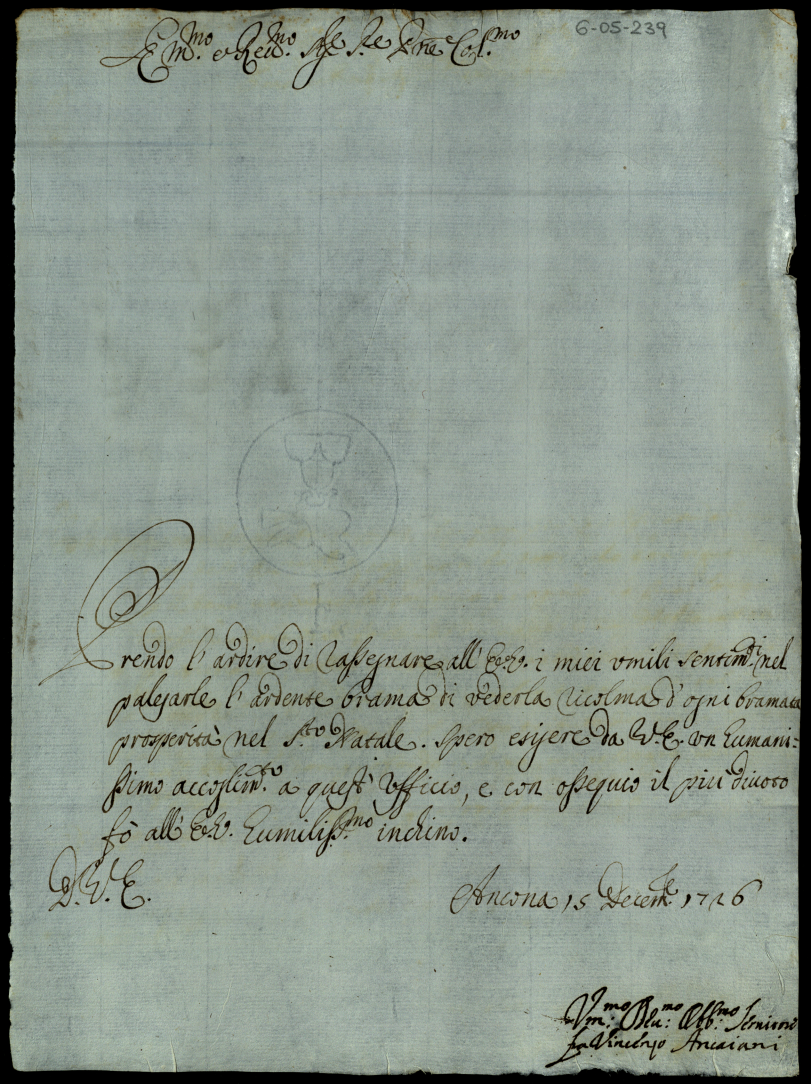 6-05-239
Em.mo e Reu.mo Sig.re S.re P.ne Col.mo
Prendo l'ardire di rassegnare all' E.V. i miei vmili sentim.ti nel
palesarle l'ardente brama di vederla ricolma d'ogni bramata
prosperità nel S.to Natale. Spero esigere da V.E. vn humani=
ssimo accoglim.to a quest' Vfficio, e con ossequio il più diuoto
fò all' E.V. humiliss.mo inchino.
D.V.E.
Ancona 15 Decem.re 1726
Vm.mo Deu.mo Obb.mo Seruitore
fra Vincenzo Ancaiani